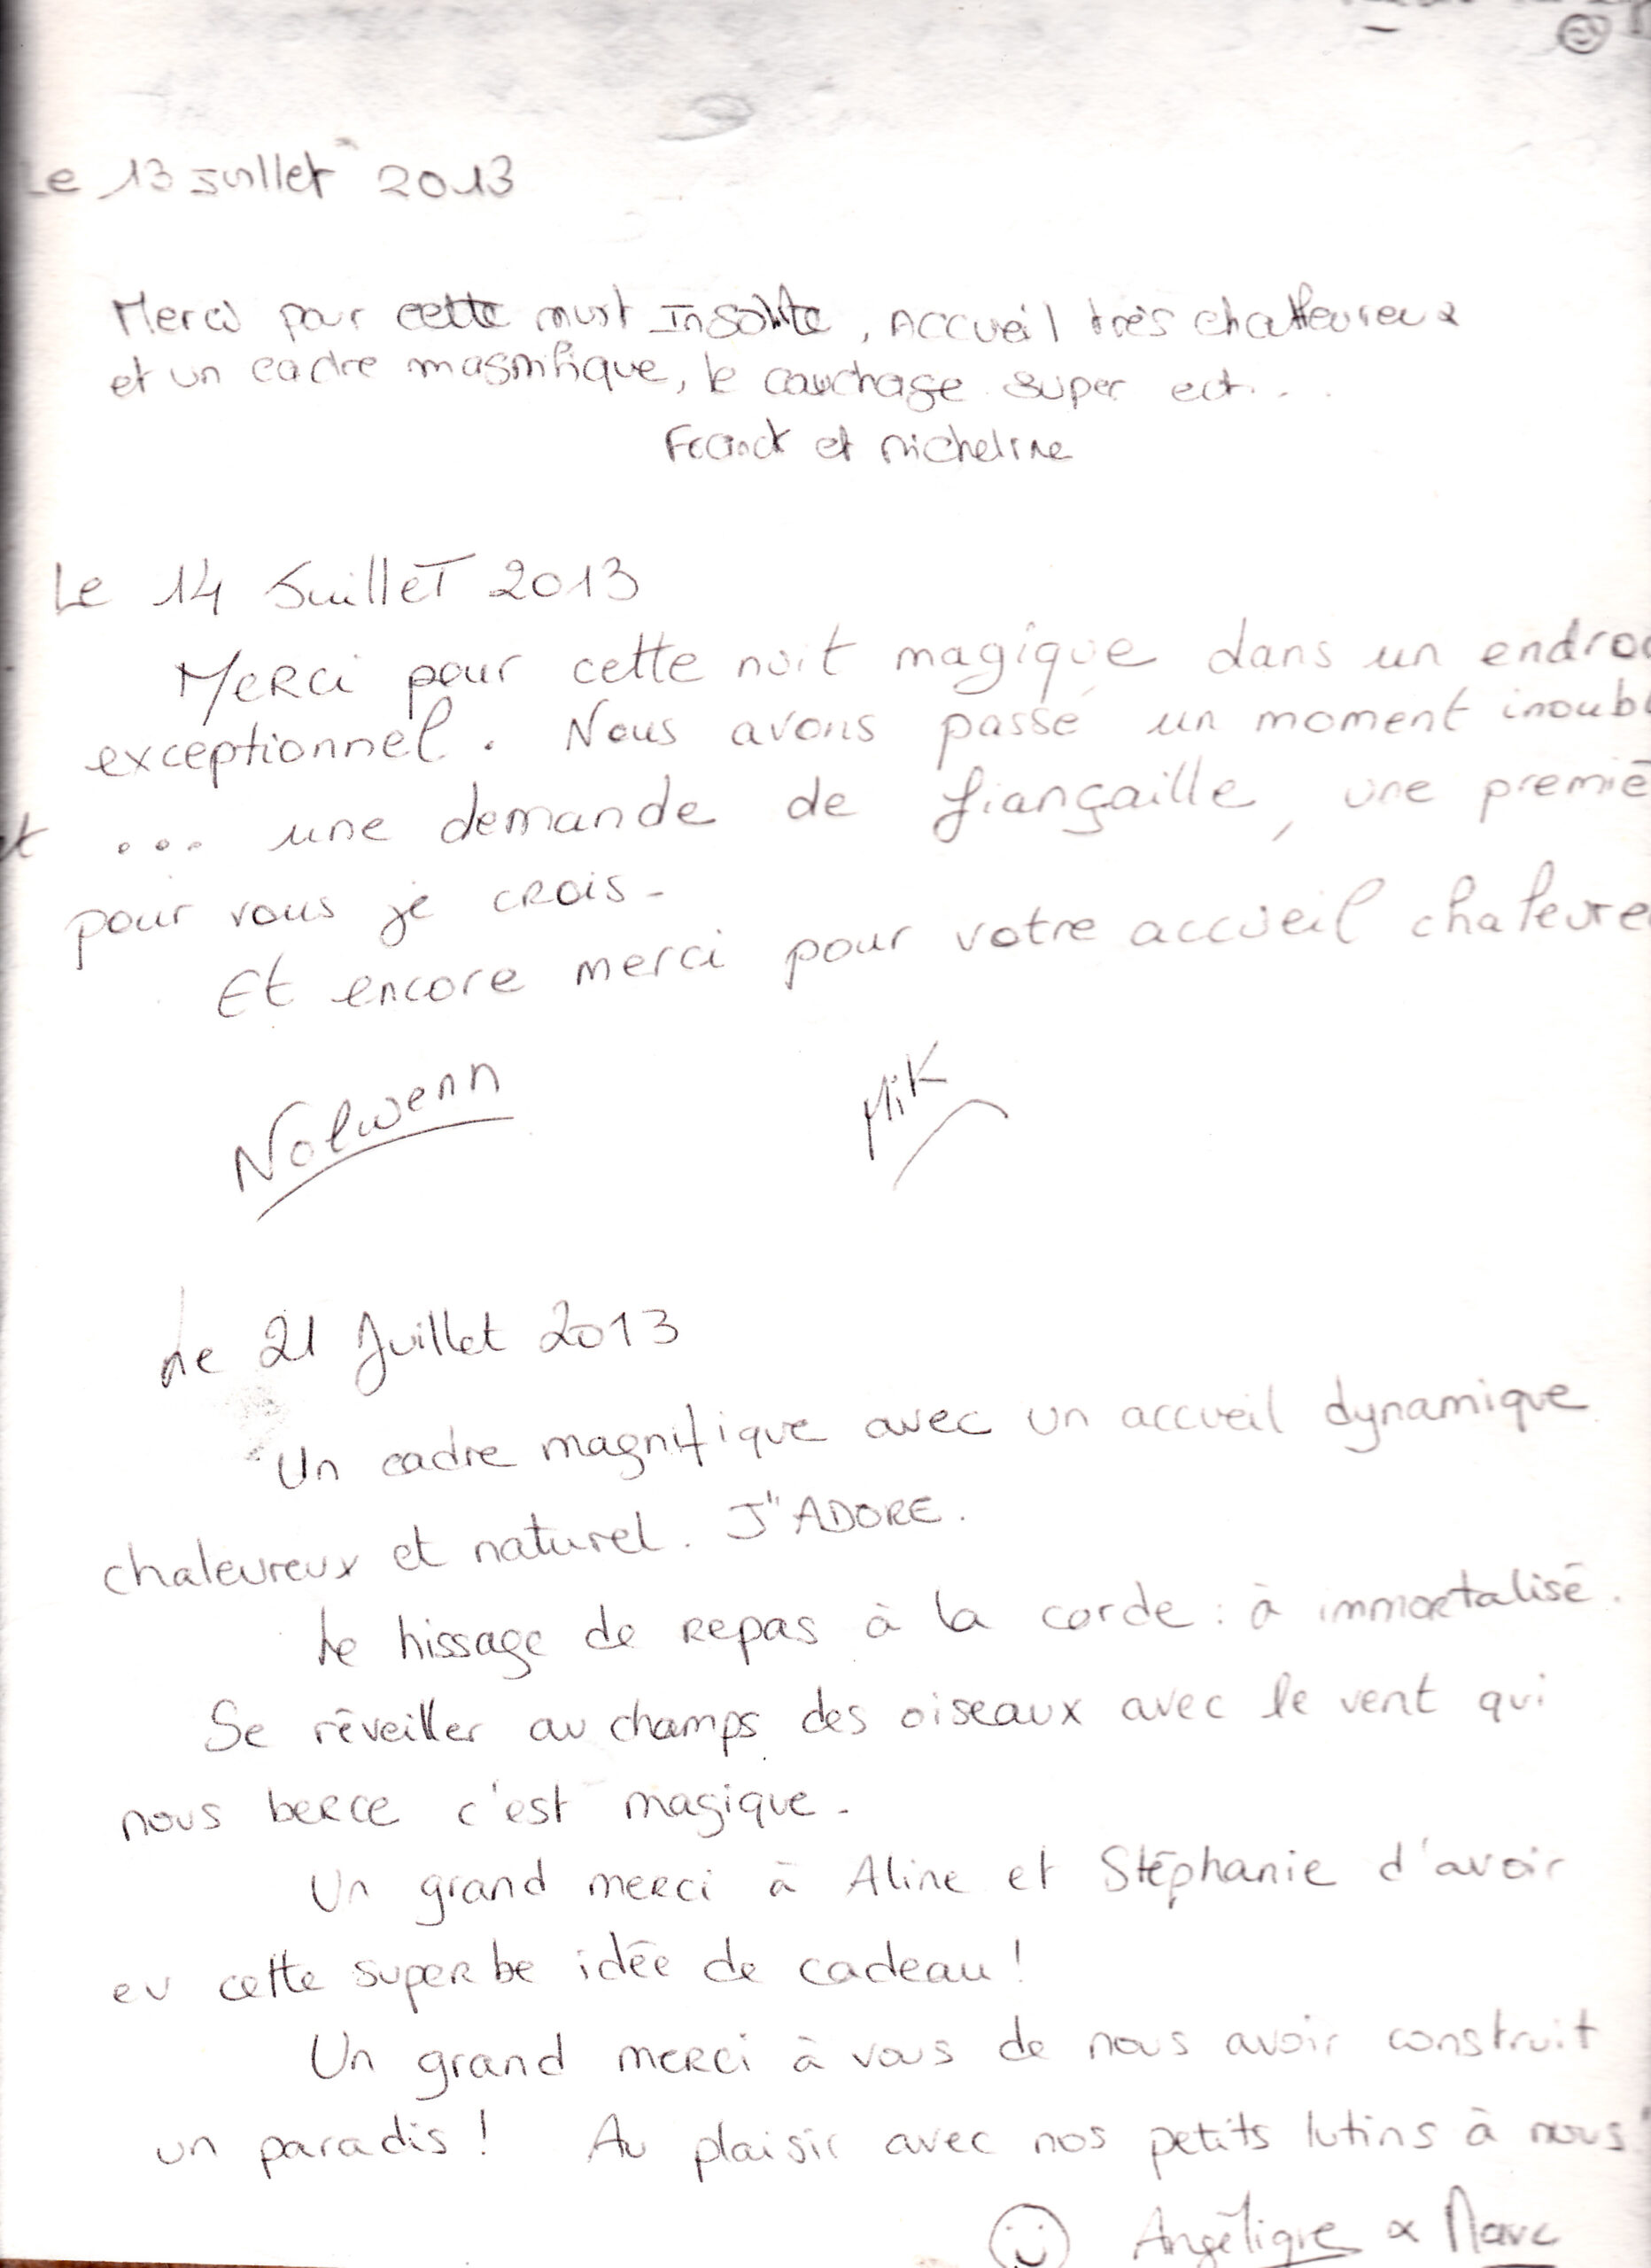 Le 13 Juillet 2013
Merci pour cette nuit Insolite, Accueil très chaleureux
et un cadre magnifique, le couchage super ect...
Franck et micheline
Le 14 Juillet 2013
Merci pour cette nuit magique dans un endroi
exceptionnel. Nous avons passé un moment inoubl
et ... une demande de fiançaille, une premiè
pour vous je crois -
Et encore merci pour votre accueil chaleure
Nolwenn Mik
Le 21 Juillet 2013
Un cadre magnifique avec un accueil dynamique
chaleureux et naturel. J"ADORE.
Le hissage de repas à la corde : à immortalisé.
Se réveiller au champs des oiseaux avec le vent qui
nous berce c'est magique -
Un grand merci à Aline et Stéphanie d'avoir
eu cette superbe idée de cadeau !
Un grand merci à vous de nous avoir construit
un paradis ! Au plaisir avec nos petits lutins à nous"
Angélique & Marc